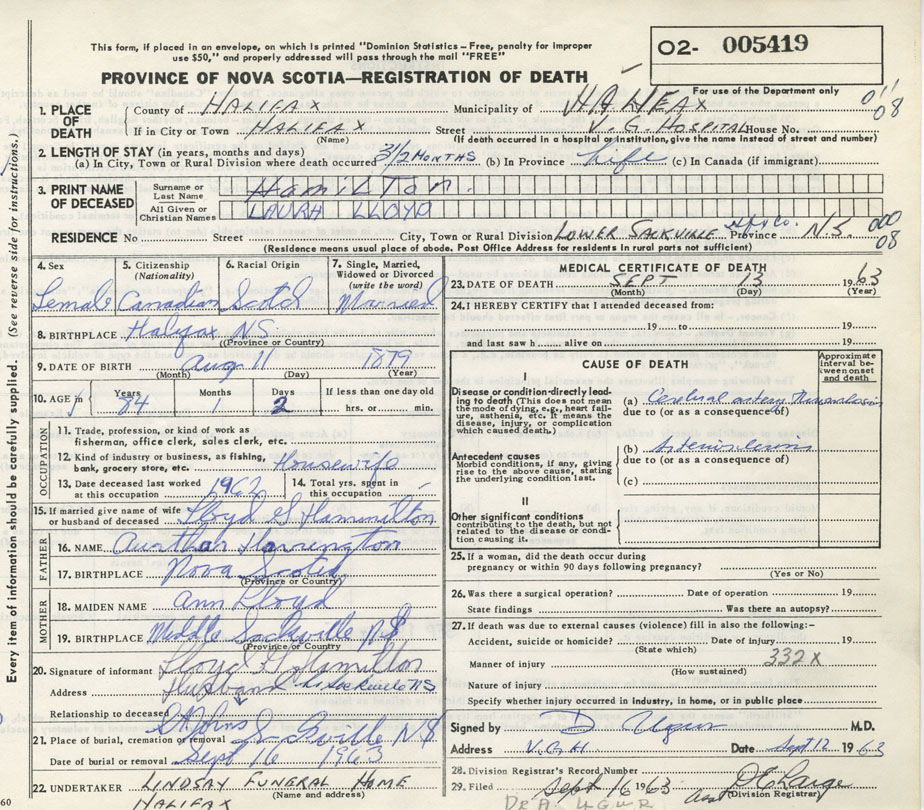 This form, if placed in an envelope, on which is printed "Dominion Statistics – Free, penalty for improper
use $50," and properly addressed will pass through the mail "FREE"
PROVINCE OF NOVA SCOTIA—REGISTRATION OF DEATH
02- 005419
For use of the Department only
1. PLACE OF DEATH
County of HALIFAX Municipality of HALIFAX 011
08
If in City or Town HALIFAX Street V. G. HOSPITAL House No.
(Name) (If death occurred in a hospital or institution, give the name instead of street and number)
2. LENGTH OF STAY (in years, months and days)
(a) In City, Town or Rural Division where death occurred 3 1/2 MONTHS (b) In Province Life (c) In Canada (if immigrant)
3. PRINT NAME OF DECEASED
Surname or Last Name HAMILTON.
All Given or Christian Names LAURA LLOYD
RESIDENCE No. Street City, Town or Rural Division LOWER SACKVILLE Hfx Co. Province N.S. 000
08
(Residence means usual place of abode. Post Office Address for residents in rural parts not sufficient)
4. Sex 5. Citizenship (Nationality) 6. Racial Origin 7. Single, Married, Widowed or Divorced (write the word)
Female Canadian Scotch Married
8. BIRTHPLACE Halifax N.S.
(Province or Country)
9. DATE OF BIRTH Aug 11 1879
(Month) (Day) (Year)
10. AGE in Years Months Days If less than one day old
84 1 2 hrs. or min.
OCCUPATION
11. Trade, profession, or kind of work as
fisherman, office clerk, sales clerk, etc.
12. Kind of industry or business, as fishing,
bank, grocery store, etc. Housewife
13. Date deceased last worked at this occupation 1962 14. Total yrs. spent in this occupation
15. If married give name of wife or husband of deceased Lloyd G Hammilton
FATHER
16. NAME Aurthar Harrington
17. BIRTHPLACE Nova Scotia
(Province or Country)
MOTHER
18. MAIDEN NAME Ann Lloyd
19. BIRTHPLACE Middle Sackville N.S
(Province or Country)
20. Signature of informant Lloyd G Hamilton
Address L. Sackville NS
Relationship to deceased Husband
21. Place of burial, cremation or removal St Johns Sackville NS
Date of burial or removal Sept 16 1963
22. UNDERTAKER LINDSAY FUNERAL HOME
(Name and address)
HALIFAX
60
Every item of information should be carefully supplied. (See reverse side for instructions.)
MEDICAL CERTIFICATE OF DEATH
23. DATE OF DEATH SEPT 13 1963
(Month) (Day) (Year)
24. I HEREBY CERTIFY that I attended deceased from:
19 to 19
and last saw h alive on 19
CAUSE OF DEATH
Approximate interval between onset and death
I
Disease or condition directly leading to death (This does not mean
the mode of dying, e.g., heart failure, asthenia, etc. It means the
disease, injury, or complication which caused death.)
(a) Cerebral artery thrombosis
due to (or as a consequence of)
Antecedent causes
Morbid conditions, if any, giving rise to the above cause, stating the underlying condition last.
(b)
due to (or as a consequence of)
(c)
II
Other significant conditions
contributing to the death, but not related to the disease or condition causing it.
25. If a woman, did the death occur during
pregnancy or within 90 days following pregnancy?
(Yes or No)
26. Was there a surgical operation? Date of operation 19
State findings Was there an autopsy?
27. If death was due to external causes (violence) fill in also the following:-
Accident, suicide or homicide? Date of injury 19
(State which)
Manner of injury 332X
(How sustained)
Nature of injury
Specify whether injury occurred in industry, in home, or in public place
Signed by D Ugur M.D.
Address V.G.H Date Sept 12 1963
28. Division Registrar's Record Number
29. Filed Sept 16 1963
(Division Registrar)
Dr A. UGUR